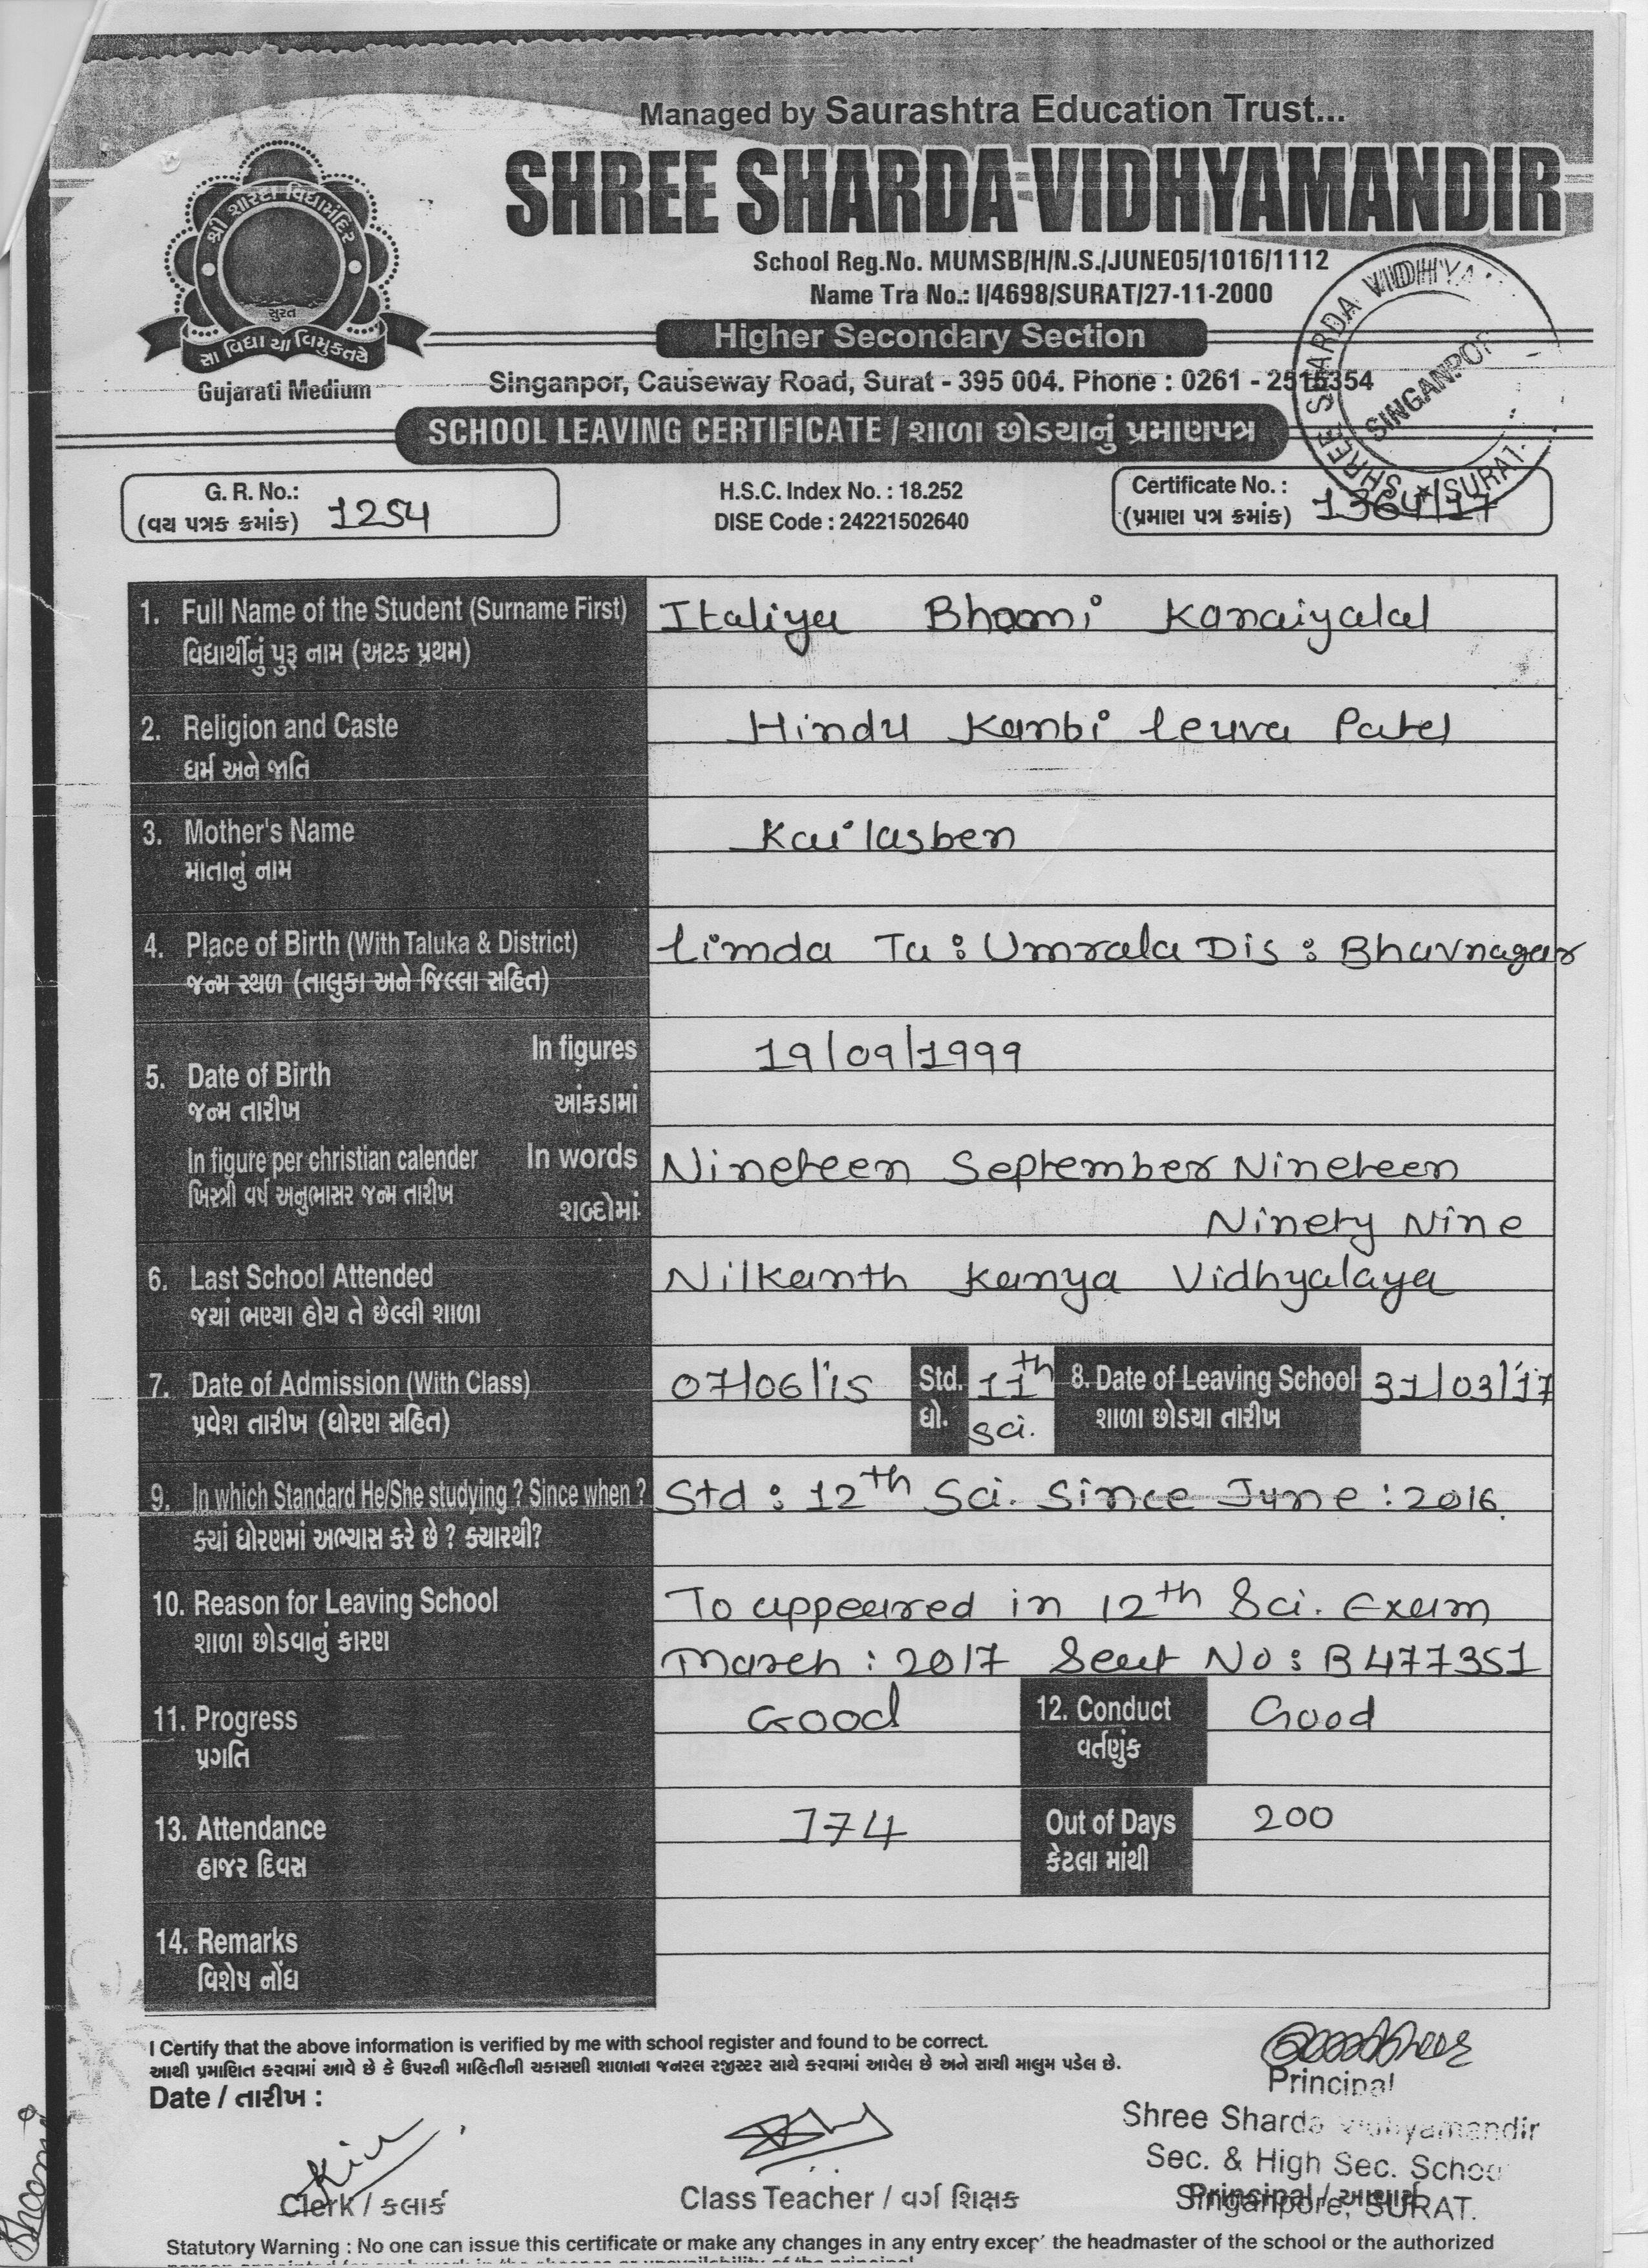 Managed by Saurashtra Education Trust...
SHREE SHARDA VIDHYAMANDIR
School Reg.No. MUMSB/H/N.S./JUNE05/1016/1112
Name Tra No.: I/4698/SURAT/27-11-2000
Higher Secondary Section
શ્રી શારદા વિદ્યામંદિર
સુરત
સા વિદ્યા યા વિમુક્તયે
Gujarati Medium
Singanpor, Causeway Road, Surat - 395 004. Phone : 0261 - 2515354
SHREE SHARDA VIDHYA
SINGANPOR
SURAT
SCHOOL LEAVING CERTIFICATE / શાળા છોડયાનું પ્રમાણપત્ર
G. R. No.:
(વય પત્રક ક્રમાંક) 1254
H.S.C. Index No. : 18.252
DISE Code : 24221502640
Certificate No. :
(પ્રમાણ પત્ર ક્રમાંક) 1364/17
1. Full Name of the Student (Surname First) Italiya Bhoomi Kanaiyalal
વિદ્યાર્થીનું પુરૂ નામ (અટક પ્રથમ)
2. Religion and Caste Hindu Kanbi leuva Patel
ધર્મ અને જાતિ
3. Mother's Name Kailasben
માતાનું નામ
4. Place of Birth (With Taluka & District) limda Ta : Umrala Dis : Bhavnagar
જન્મ સ્થળ (તાલુકા અને જિલ્લા સહિત)
5. Date of Birth In figures 19/09/1999
જન્મ તારીખ આંકડામાં
In figure per christian calender In words Nineteen September Nineteen
ખ્રિસ્ત્રી વર્ષ અનુભાસર જન્મ તારીખ શબ્દોમાં Ninety Nine
6. Last School Attended Nilkanth Kanya Vidhyalaya
જયાં ભણ્યા હોય તે છેલ્લી શાળા
7. Date of Admission (With Class) 07/06/15 Std. 11th 8. Date of Leaving School 31/03/17
પ્રવેશ તારીખ (ધોરણ સહિત) ધો. Sci. શાળા છોડયા તારીખ
9. In which Standard He/She studying ? Since when ? Std : 12th Sci. Since June : 2016
ક્યાં ધોરણમાં અભ્યાસ કરે છે ? ક્યારથી?
10. Reason for Leaving School To appeared in 12th Sci. Exam
શાળા છોડવાનું કારણ March : 2017 Seat No : B477351
11. Progress Good 12. Conduct Good
પ્રગતિ વર્તણુંક
13. Attendance 174 Out of Days 200
હાજર દિવસ કેટલા માંથી
14. Remarks
વિશેષ નોંધ
I Certify that the above information is verified by me with school register and found to be correct.
આથી પ્રમાણિત કરવામાં આવે છે કે ઉપરની માહિતીની ચકાસણી શાળાના જનરલ રજીસ્ટર સાથે કરવામાં આવેલ છે અને સાચી માલુમ પડેલ છે.
Date / તારીખ :
Principal
Shree Sharda Vidhyamandir
Sec. & High Sec. School
Singanpore, SURAT.
Clerk / કલાર્ક
Class Teacher / વર્ગ શિક્ષક
Principal / આચાર્ય
Bhoomi
Statutory Warning : No one can issue this certificate or make any changes in any entry except the headmaster of the school or the authorized